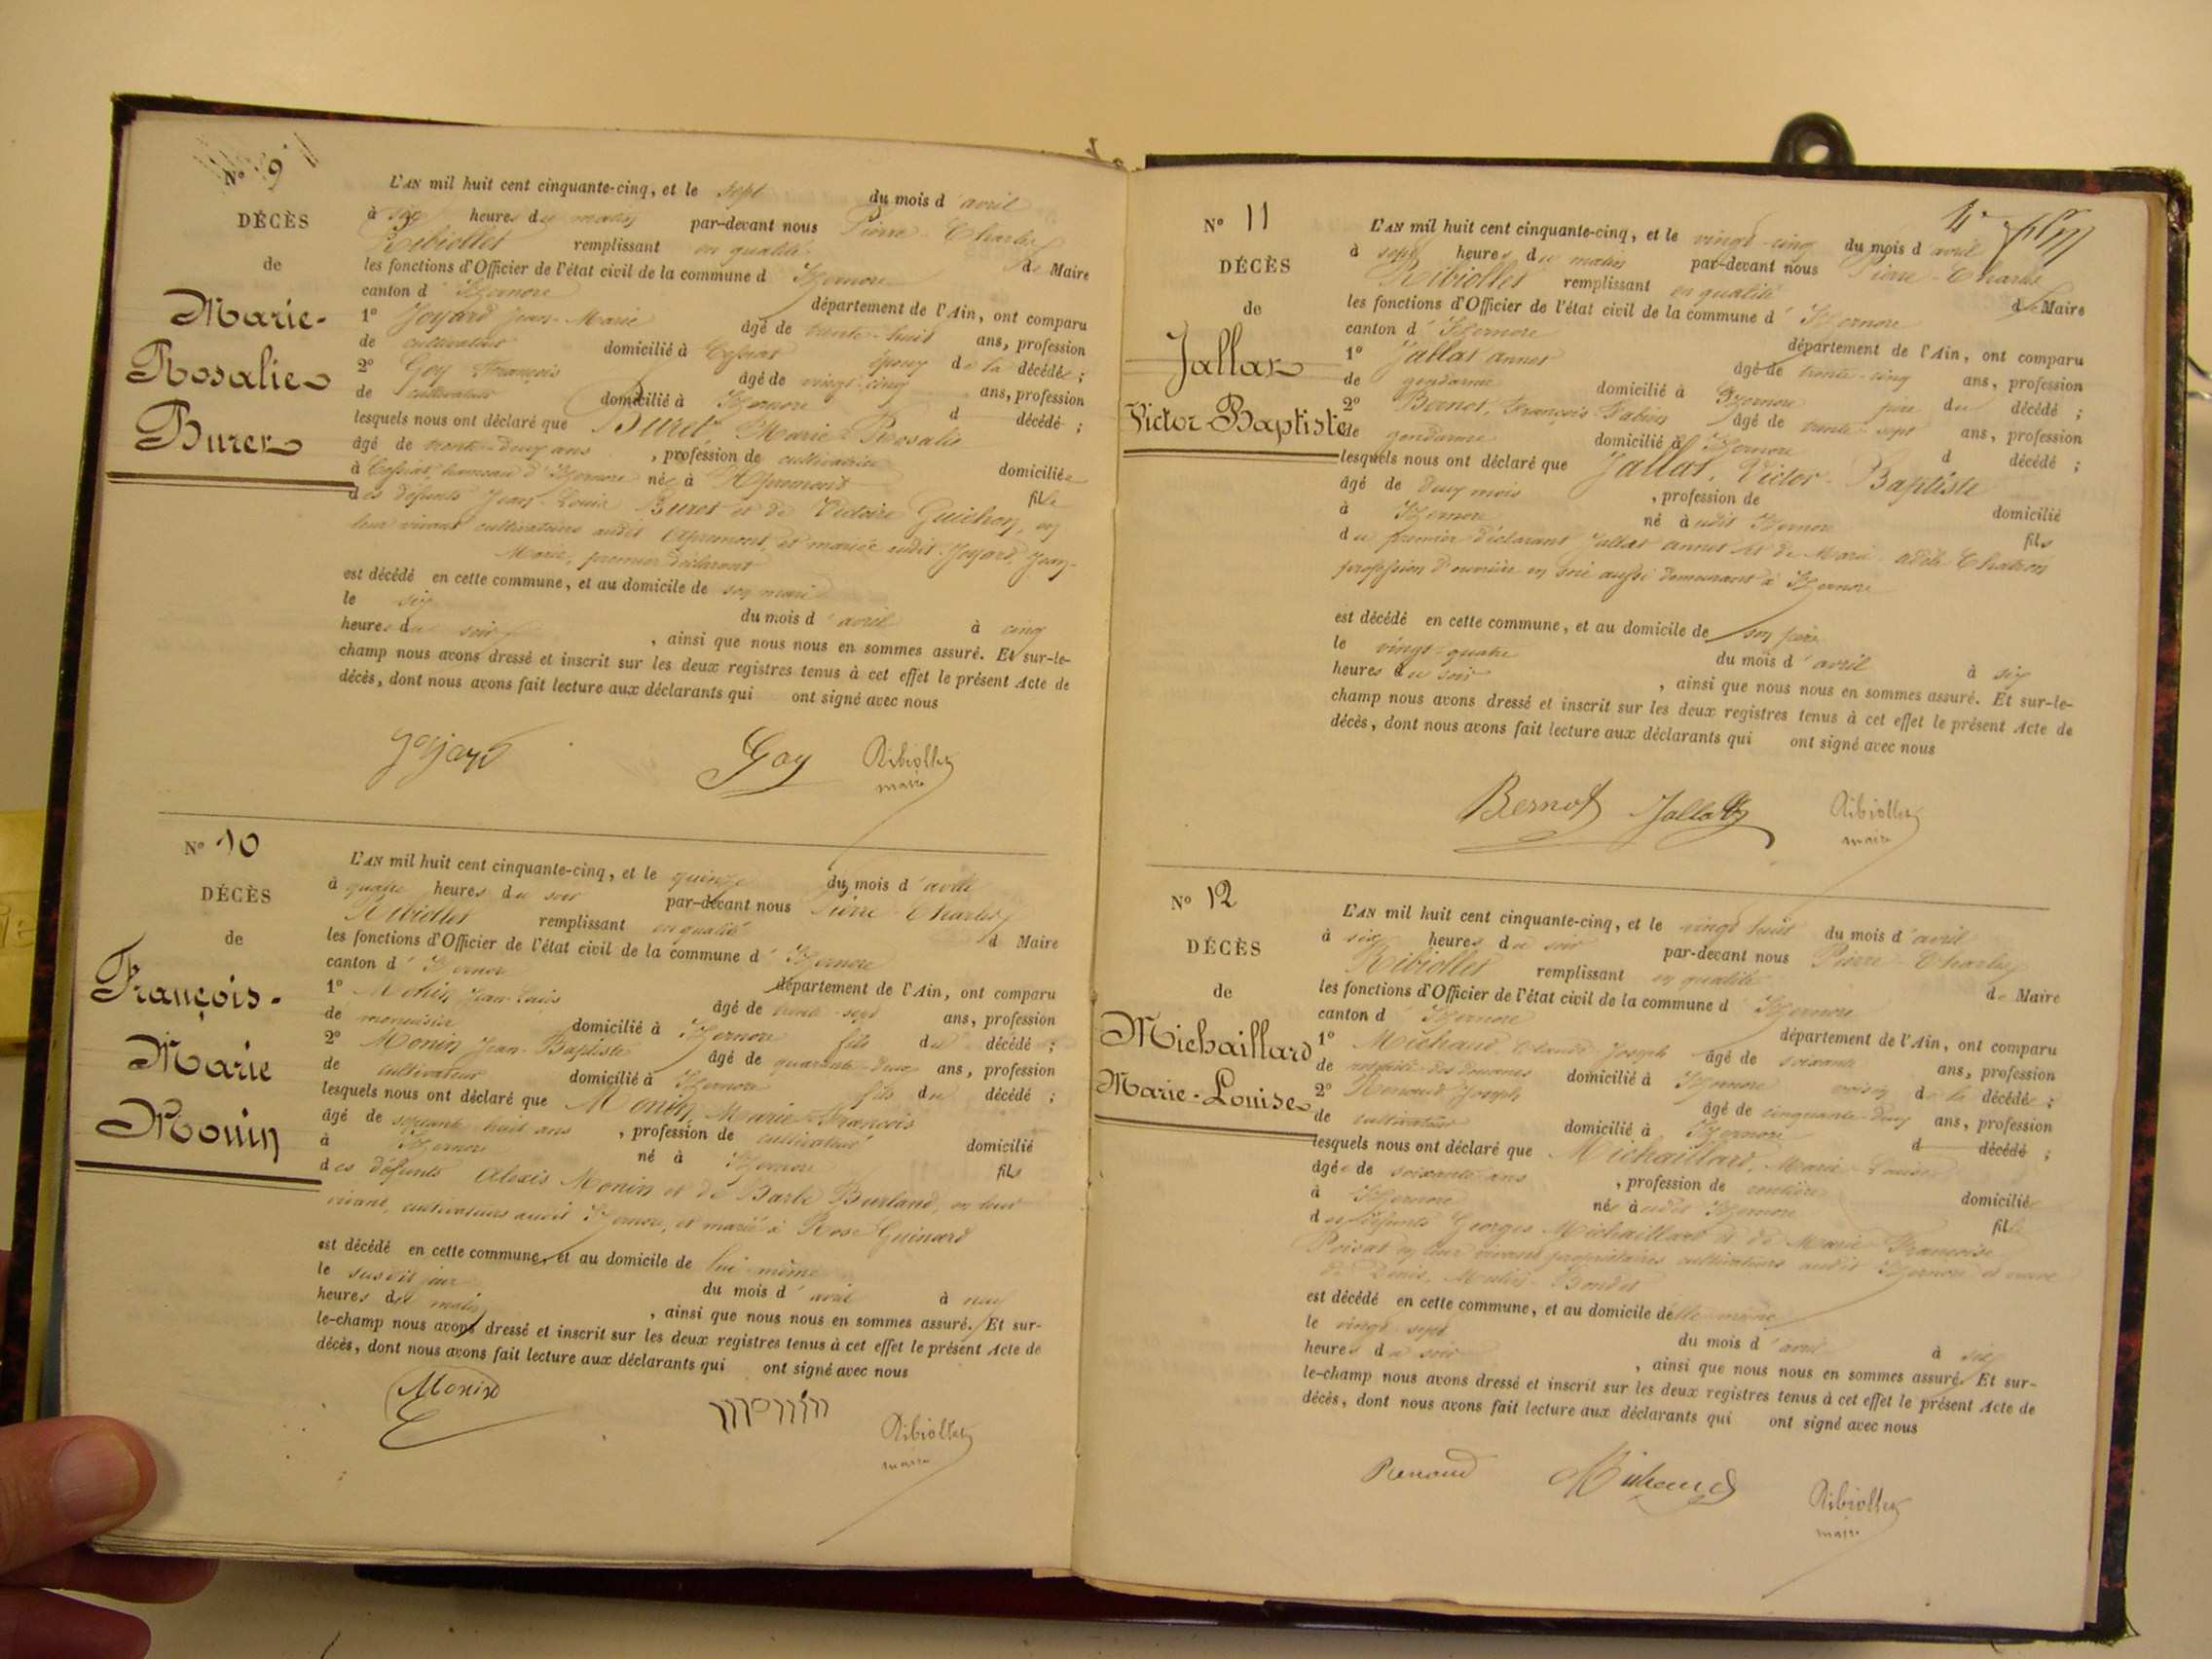 N° 9
DÉCÈS
de
Marie-
Rosalie
Buret
L'AN mil huit cent cinquante-cinq, et le sept du mois d'avril
à six heures du matin par-devant nous Pierre-Charles
Ribiollet remplissant en qualité de Maire
les fonctions d'Officier de l'état civil de la commune d'Izernore
canton d'Izernore département de l'Ain, ont comparu
1° Joyard Jean-Marie âgé de trente-huit ans, profession
de cultivateur domicilié à époux de la décédée ;
2° Goy François âgé de vingt-cinq ans, profession
de cultivateur domicilié à Izernore d décédé ;
lesquels nous ont déclaré que Buret, Marie-Rosalie
âgé de trente-deux ans, profession de cultivatrice domiciliée
à hameau d'Izernore née à Apremont fille
des défunts Jean-Louis Buret et de Victoire Guichon, en
leur vivant cultivateurs audit Apremont, et mariée audit Joyard, Jean-
Marie, premier déclarant
est décédé en cette commune, et au domicile de son mari
le six du mois d'avril à cinq
heures du soir, ainsi que nous nous en sommes assuré. Et sur-le-
champ nous avons dressé et inscrit sur les deux registres tenus à cet effet le présent Acte de
décès, dont nous avons fait lecture aux déclarants qui ont signé avec nous
Joyard Goy Ribiollet
maire
N° 10
DÉCÈS
de
François-
Marie
Monin
L'AN mil huit cent cinquante-cinq, et le quinze du mois d'avril
à quatre heures du soir par-devant nous Pierre-Charles
Ribiollet remplissant en qualité d Maire
les fonctions d'Officier de l'état civil de la commune d'Izernore
canton d'Izernore département de l'Ain, ont comparu
1° Monin Jean-Louis âgé de trente-sept ans, profession
de menuisier domicilié à Izernore fils du décédé ;
2° Monin Jean-Baptiste âgé de quarante-deux ans, profession
de cultivateur domicilié à Izernore fils du décédé ;
lesquels nous ont déclaré que Monin, Marie-François
âgé de soixante huit ans, profession de cultivateur domicilié
à Izernore né à Izernore fils
des défunts Alexis Monin et de Barbe Burland, en leur
vivant, cultivateurs audit Izernore, et marié à Rose Guinard
est décédé en cette commune, et au domicile de lui-même
le susdit jour du mois d'avril à neuf
heures du matin, ainsi que nous nous en sommes assuré. Et sur-
le-champ nous avons dressé et inscrit sur les deux registres tenus à cet effet le présent Acte de
décès, dont nous avons fait lecture aux déclarants qui ont signé avec nous
Monin monin Ribiollet
maire
N° 11
DÉCÈS
de
Jallat
Victor-Baptiste
L'AN mil huit cent cinquante-cinq, et le vingt-cinq du mois d'avril
à sept heures du matin par-devant nous Pierre-Charles
Ribiollet remplissant en qualité de Maire
les fonctions d'Officier de l'état civil de la commune d'Izernore
canton d'Izernore département de l'Ain, ont comparu
1° Jallat annet âgé de trente-cinq ans, profession
de gendarme domicilié à Izernore père du décédé ;
2° Bernot, François Fabien âgé de trente-sept ans, profession
de gendarme domicilié à Izernore d décédé ;
lesquels nous ont déclaré que Jallat, Victor-Baptiste
âgé de deux mois, profession de domicilié
à Izernore né à udit Izernore fils
du premier déclarant Jallat annet et de Marie-adèle Chatron
profession d'ouvrière en soie aussi demeurant à Izernore
est décédé en cette commune, et au domicile de son père
le vingt-quatre du mois d'avril à six
heures du soir, ainsi que nous nous en sommes assuré. Et sur-le-
champ nous avons dressé et inscrit sur les deux registres tenus à cet effet le présent Acte de
décès, dont nous avons fait lecture aux déclarants qui ont signé avec nous
Bernot Jallat Ribiollet
maire
N° 12
DÉCÈS
de
Michaillard
Marie-Louise
L'AN mil huit cent cinquante-cinq, et le vingt huit du mois d'avril
à six heures du soir par-devant nous Pierre-Charles
Ribiollet remplissant en qualité de Maire
les fonctions d'Officier de l'état civil de la commune d'Izernore
canton d'Izernore département de l'Ain, ont comparu
1° Michaud, Claude Joseph âgé de soixante ans, profession
de des douanes domicilié à Izernore voisin de la décédée ;
2° Renaud Joseph âgé de cinquante-deux ans, profession
de cultivateur domicilié à Izernore d décédé ;
lesquels nous ont déclaré que Michaillard, Marie Louise
âgée de soixante ans, profession de rentière domiciliée
à Izernore née à udit Izernore fille
des défunts Georges Michaillard et de Marie-Françoise
Poisat en leur vivant propriétaires cultivateurs audit Izernore et veuve
de Denis, Moulin-Bondet
est décédé en cette commune, et au domicile d'elle-même
le vingt-sept du mois d'avril à six
heures du soir, ainsi que nous nous en sommes assuré. Et sur-
le-champ nous avons dressé et inscrit sur les deux registres tenus à cet effet le présent Acte de
décès, dont nous avons fait lecture aux déclarants qui ont signé avec nous
Renaud Michaud Ribiollet
maire